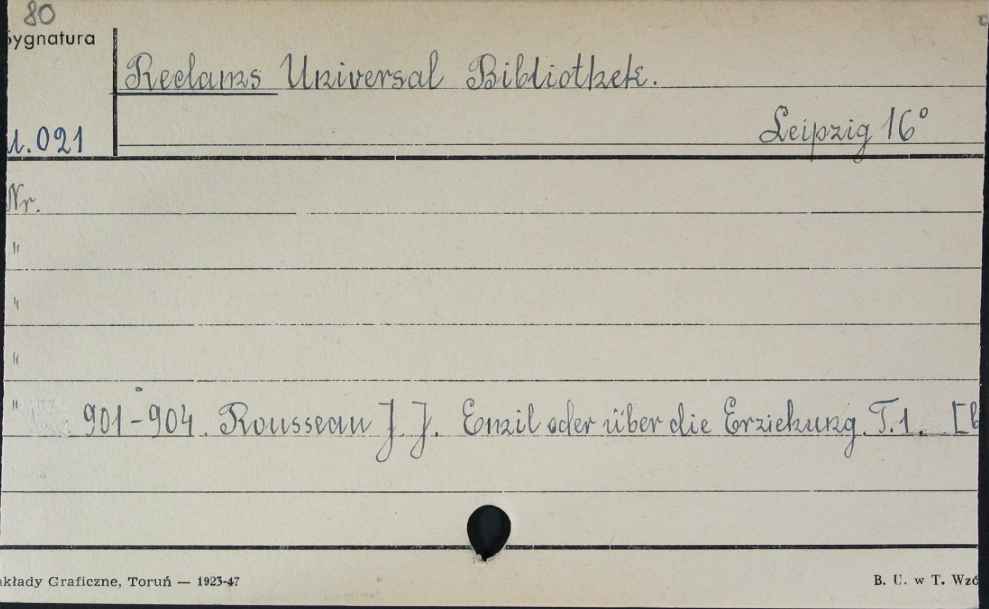 80
Sygnatura
Reclams Universal Bibliothek.
021
Leipzig 16°
Nr.
"
"
"
" 901-904. Rousseau J. J. Emil oder über die Erziehung. T.1. [b
Graficzne, Toruń — 1923-47
B. U. w T. Wzó